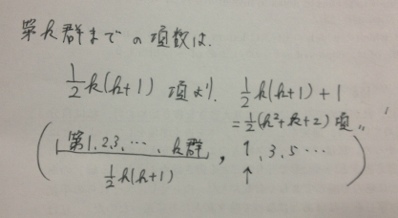 第k群までの項数は.
1/2 k(k+1) 項より. 1/2 k(k+1)+1
= 1/2 (k²+k+2) 項〃
( 第1,2,3,…,k群 , 1, 3, 5 … )
1/2 k(k+1) ↑